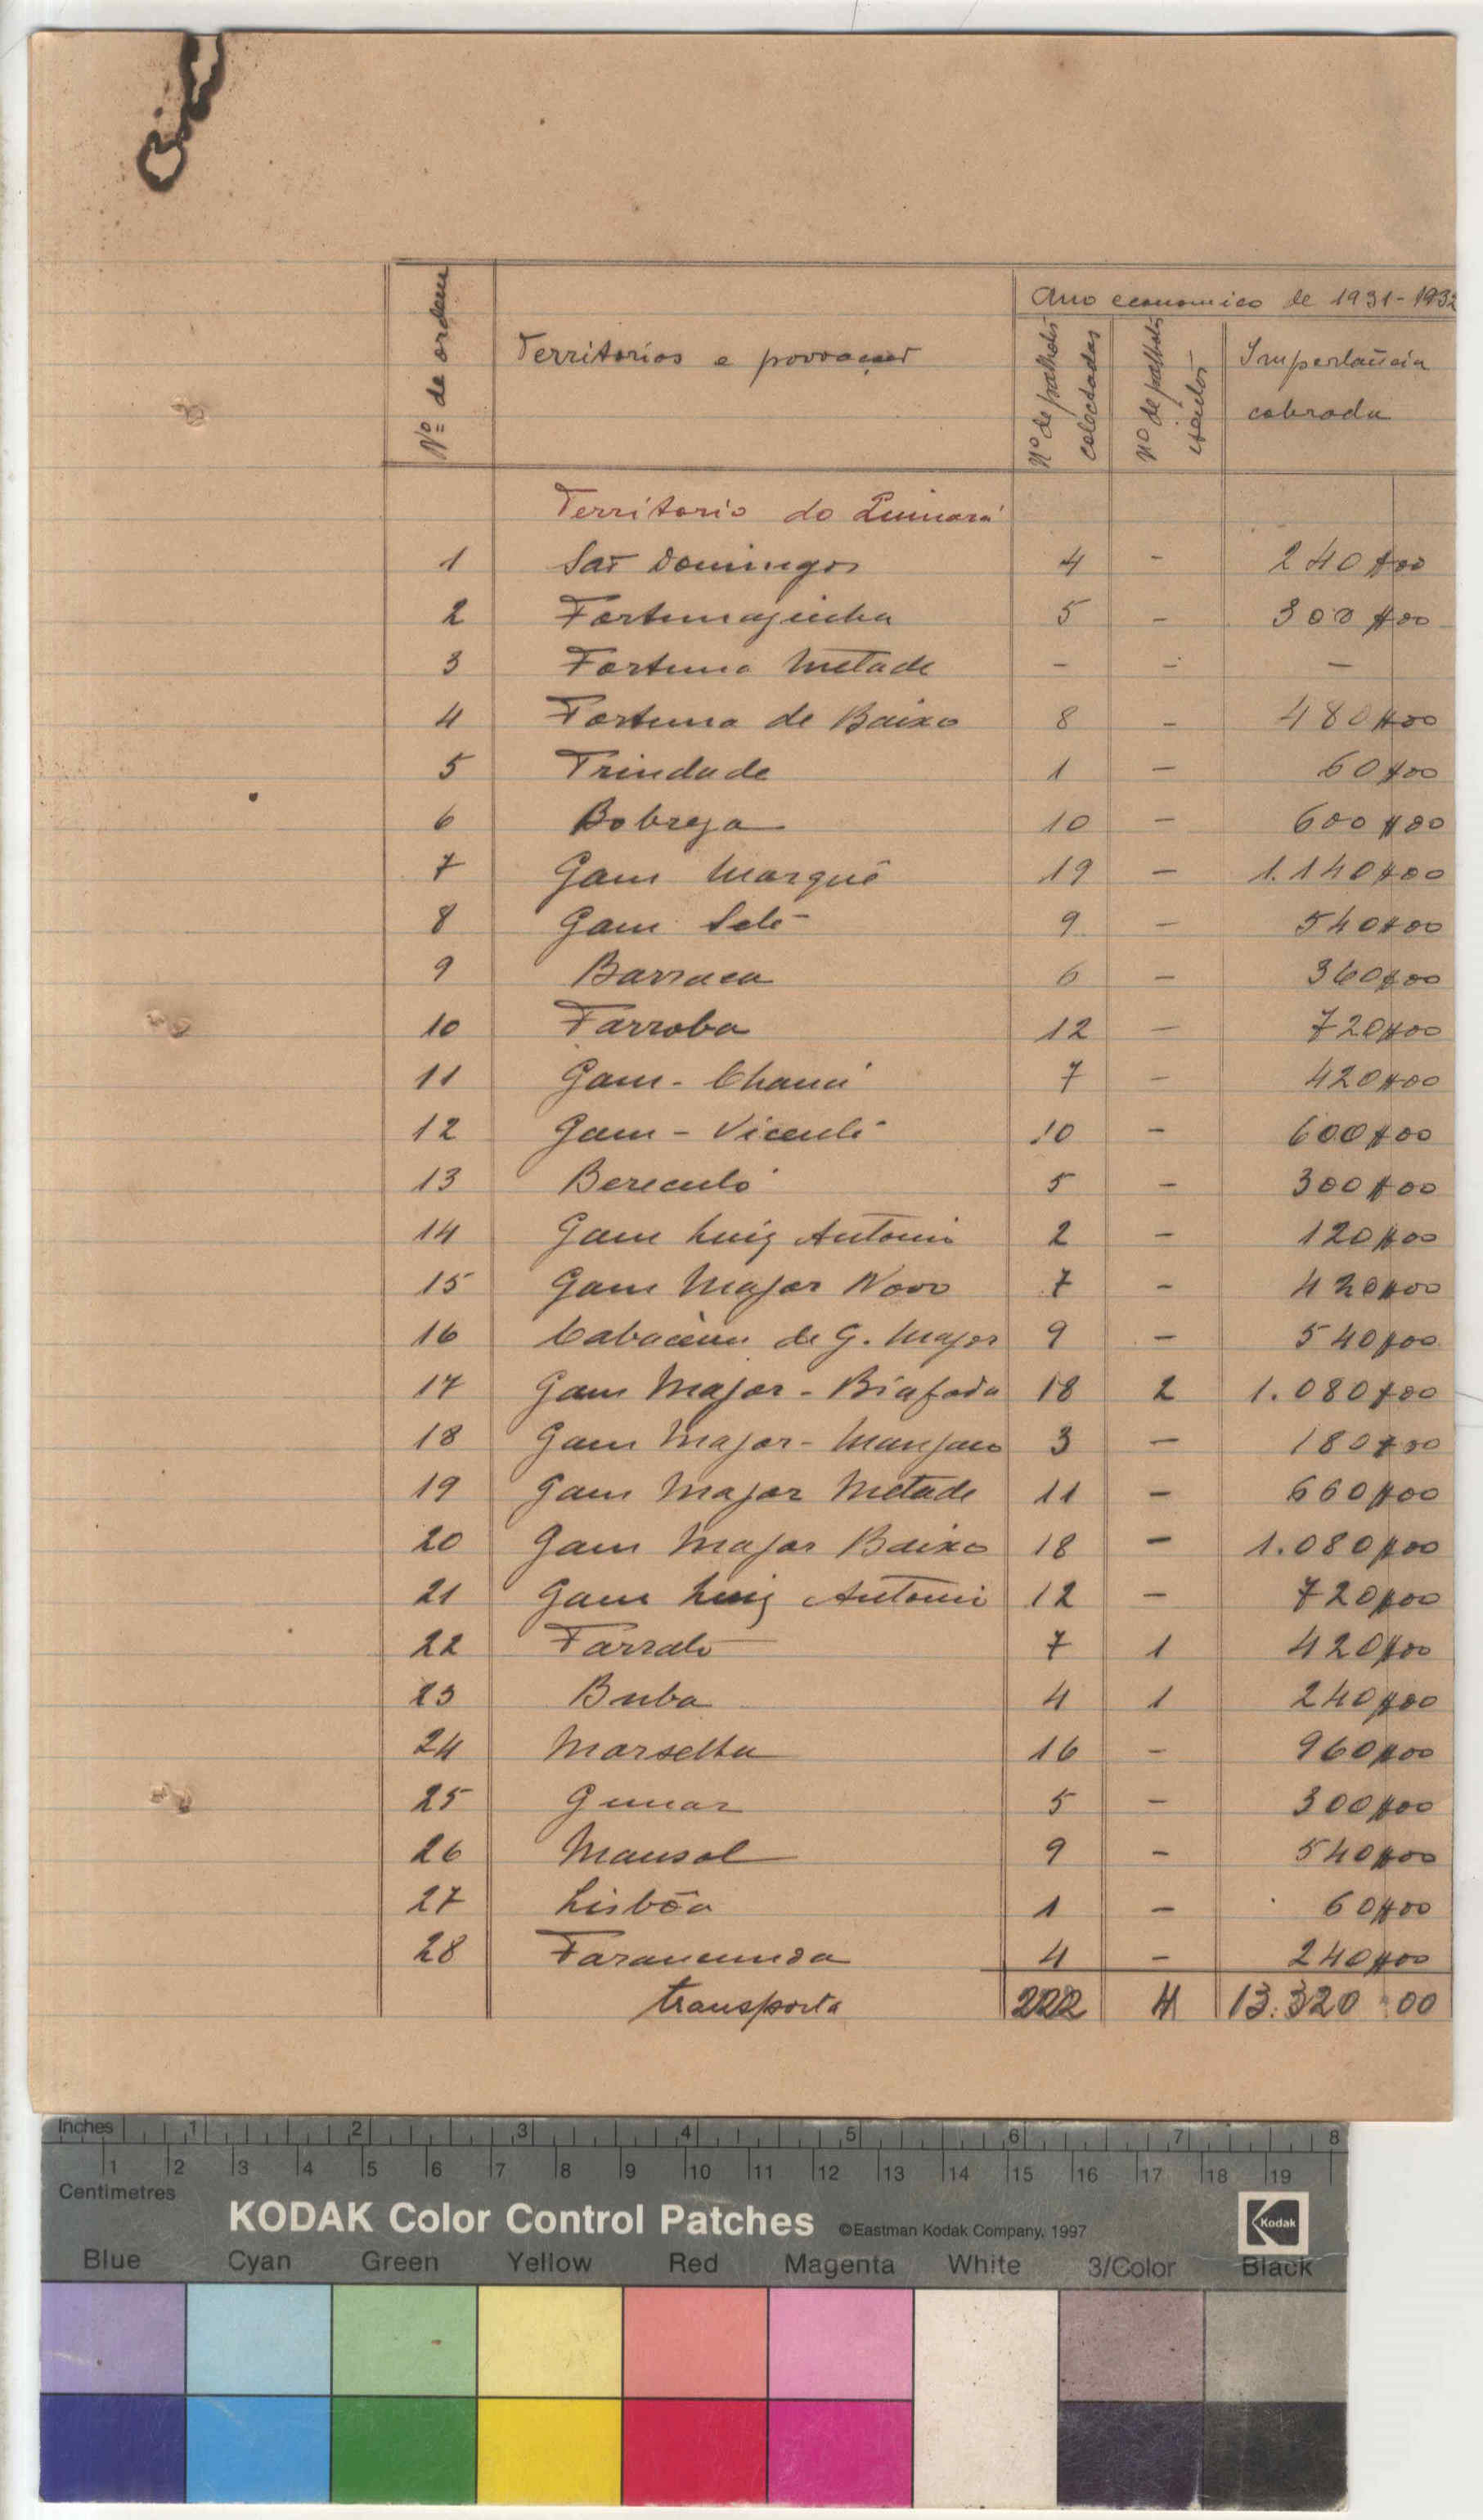 Ano economico de 1931-1932
Nº de ordem
Territorios e povoações
Nº de palhotas colectadas
Nº de palhotas
Importância cobrada
Territorio do Quinará
1 São Domingos 4 - 240$00
2 Fortunajinha 5 - 300$00
3 Fortuna Metade - - -
4 Fortuna de Baixo 8 - 480$00
5 Trindade 1 - 60$00
6 Bobreja 10 - 600$00
7 Gam Marquê 19 - 1.140$00
8 Gam 9 - 540$00
9 Barraca 6 - 360$00
10 Farroba 12 - 720$00
11 Gam-Chaná 7 - 420$00
12 Gam-Vicente 10 - 600$00
13 Bereculó 5 - 300$00
14 Gam Luiz Antonio 2 - 120$00
15 Gam Major Novo 7 - 420$00
16 de G. Major 9 - 540$00
17 Gam Major-Biafada 18 2 1.080$00
18 Gam Major-Manjaco 3 - 180$00
19 Gam Major Metade 11 - 660$00
20 Gam Major Baixo 18 - 1.080$00
21 Gam Luiz Antoni 12 - 720$00
22 7 1 420$00
23 Buba 4 1 240$00
24 16 - 960$00
25 5 - 300$00
26 Mansol 9 - 540$00
27 Lisbôa 1 - 60$00
28 4 - 240$00
transporta 222 4 13.320 00
Inches 1 2 3 4 5 6 7 8
1 2 3 4 5 6 7 8 9 10 11 12 13 14 15 16 17 18 19
Centimetres
KODAK Color Control Patches ©Eastman Kodak Company, 1997 Kodak
Blue Cyan Green Yellow Red Magenta White 3/Color Black